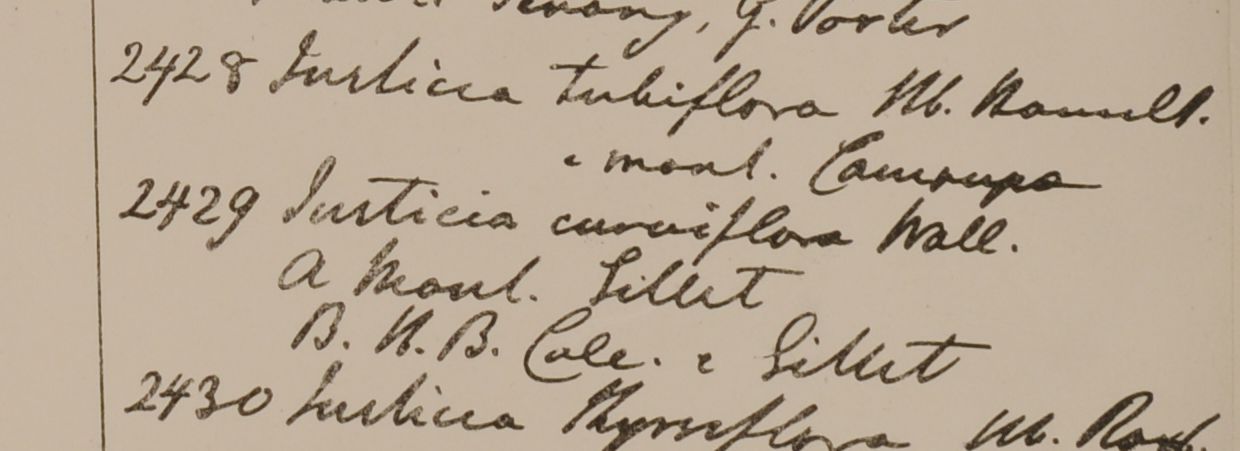 Penang, G. Porter
2428 Justicia tubiflora Hb. Hamilt.
e mont. Camrupa
2429 Justicia curviflora Wall.
a Mont. Sillet
B. H. B. Calc. e Sillet
2430 Justicia thyrsiflora Hb. Roxb.